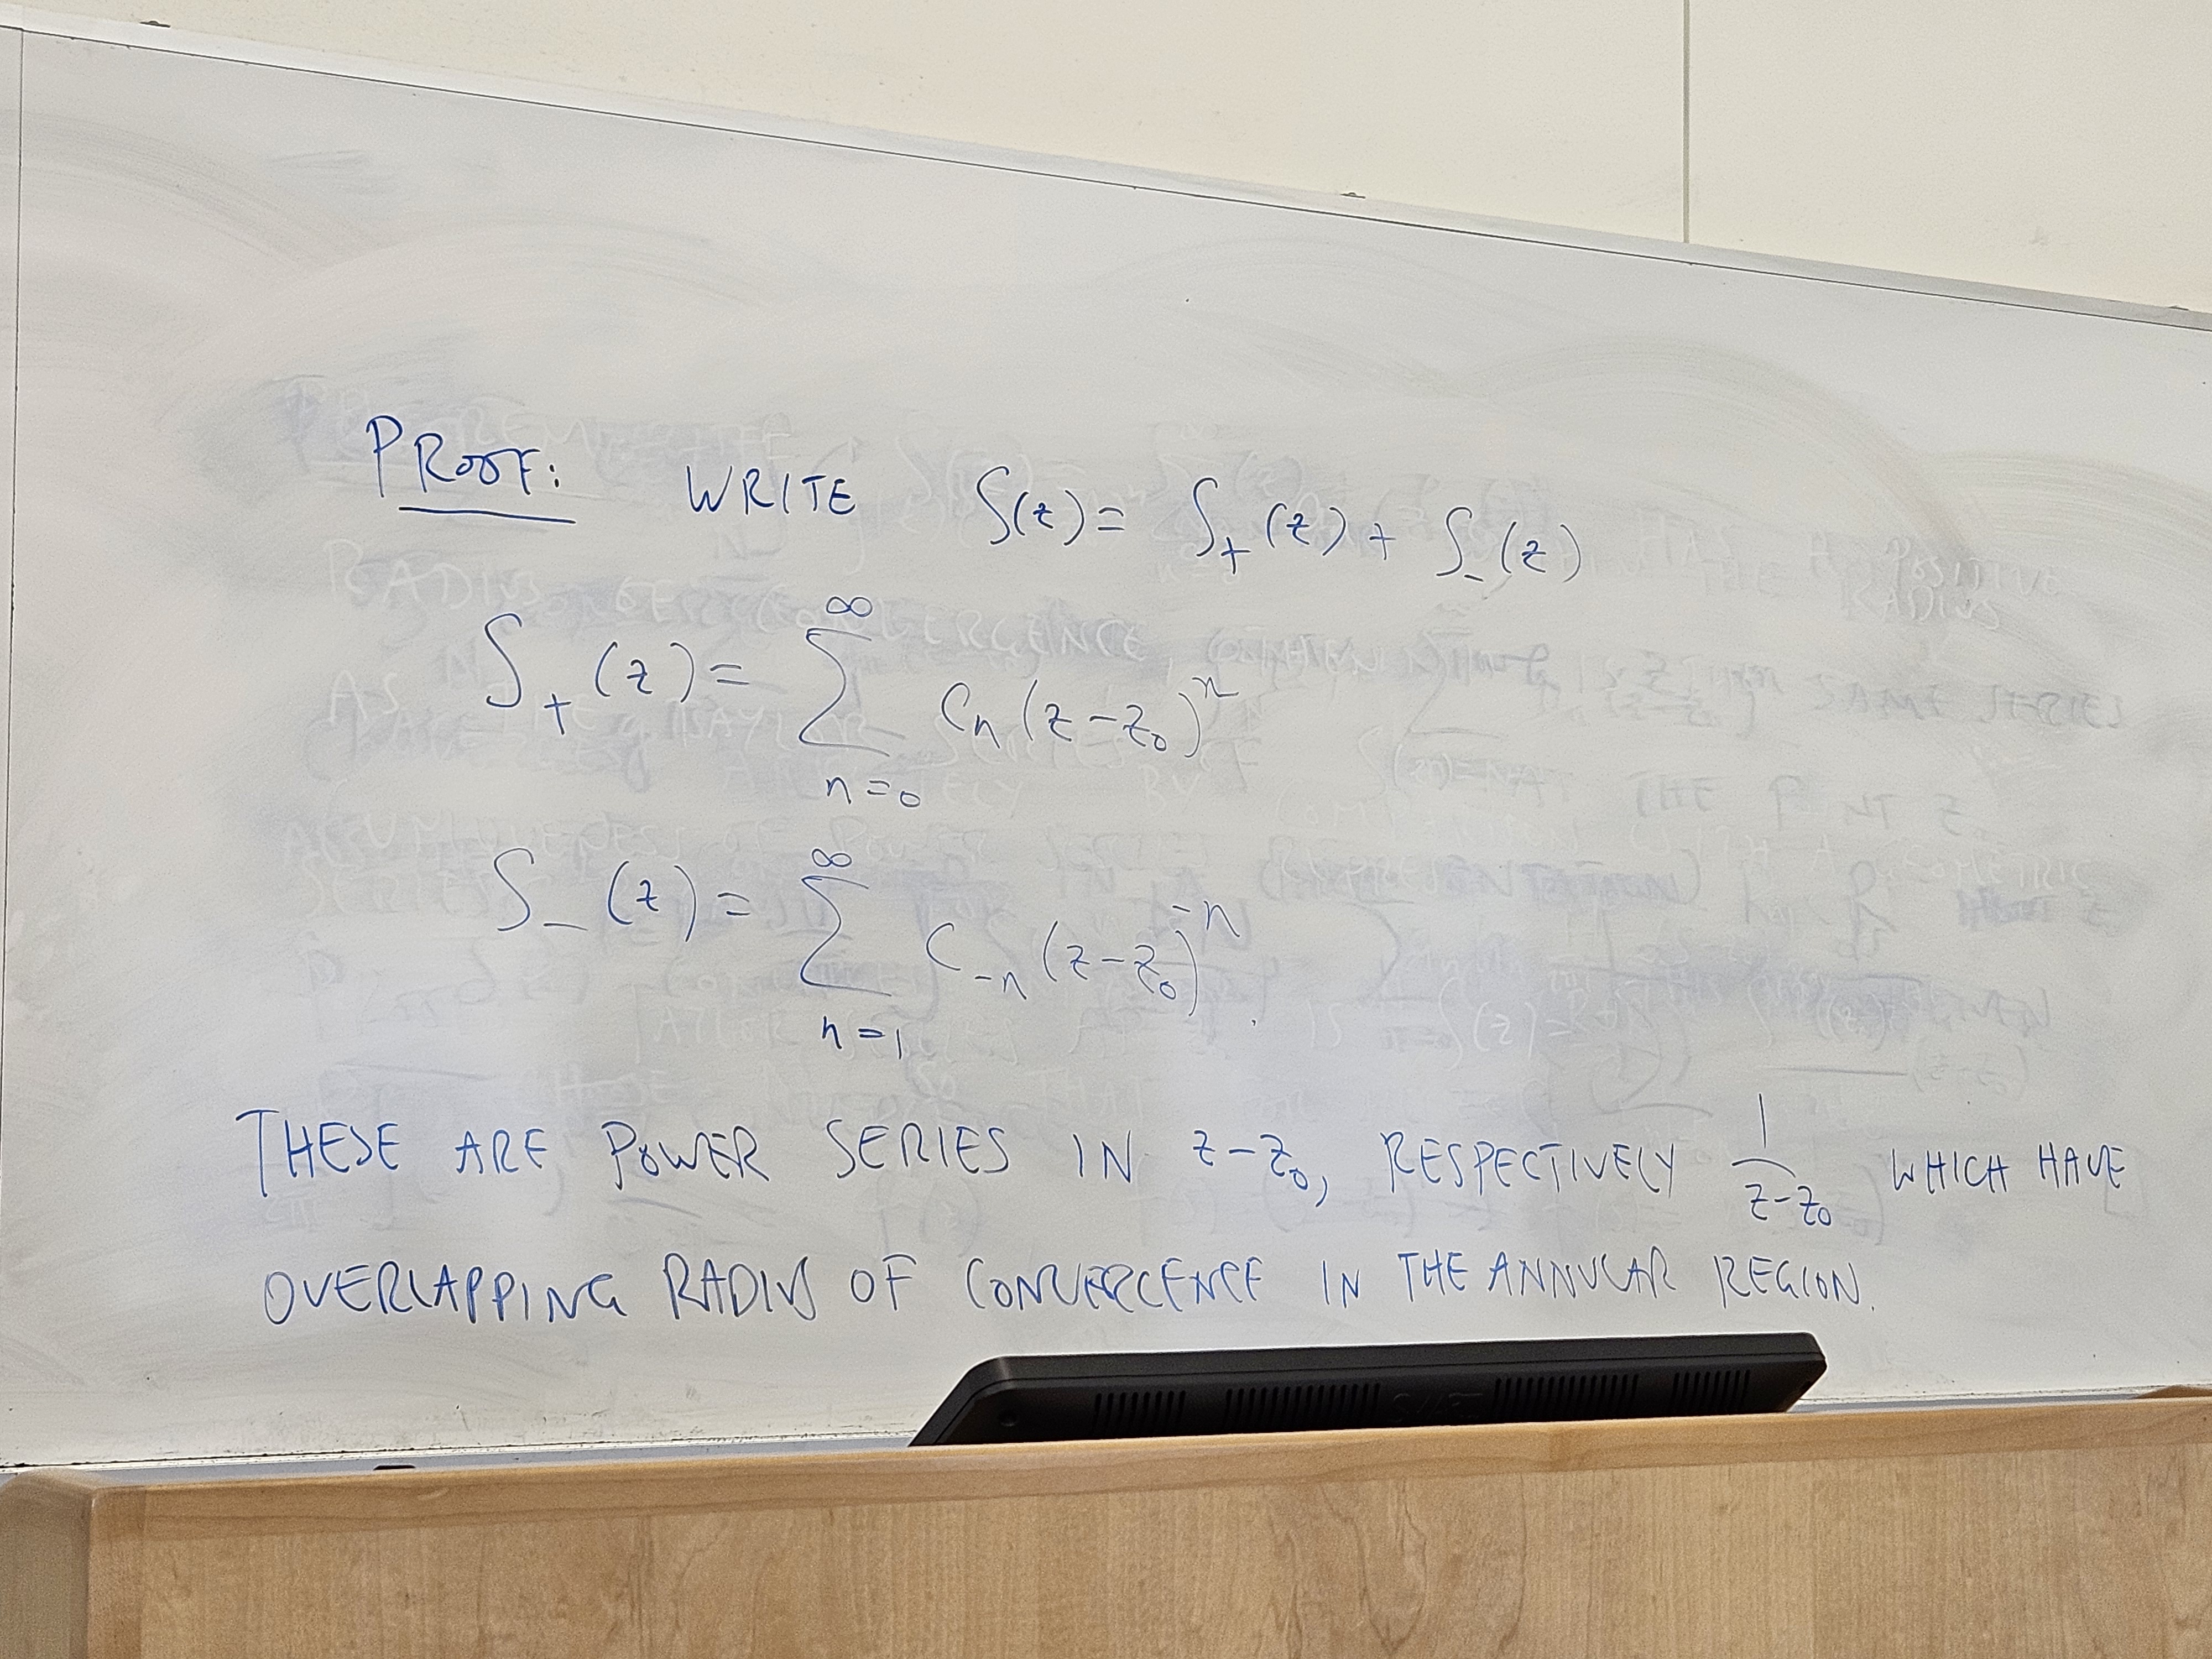 PROOF: WRITE S(z) = S₊(z) + S₋(z)
S₊(z) = ∑_{n=0}^{∞} c_n (z-z₀)^n
S₋(z) = ∑_{n=1}^{∞} c_{-n} (z-z₀)^{-n}.
THESE ARE POWER SERIES IN z-z₀, RESPECTIVELY 1/(z-z₀) WHICH HAVE
OVERLAPPING RADIUS OF CONVERGENCE IN THE ANNULAR REGION.